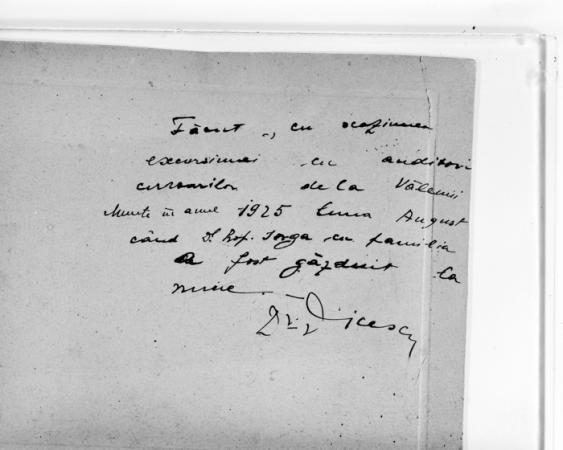 Făcut, cu ocaziunea
excursiunei cu auditori
cursurilor de la Vălenii
Munte în anul 1925 luna August
când Dl Prof. Iorga cu familia
a fost găzduit la
mine.